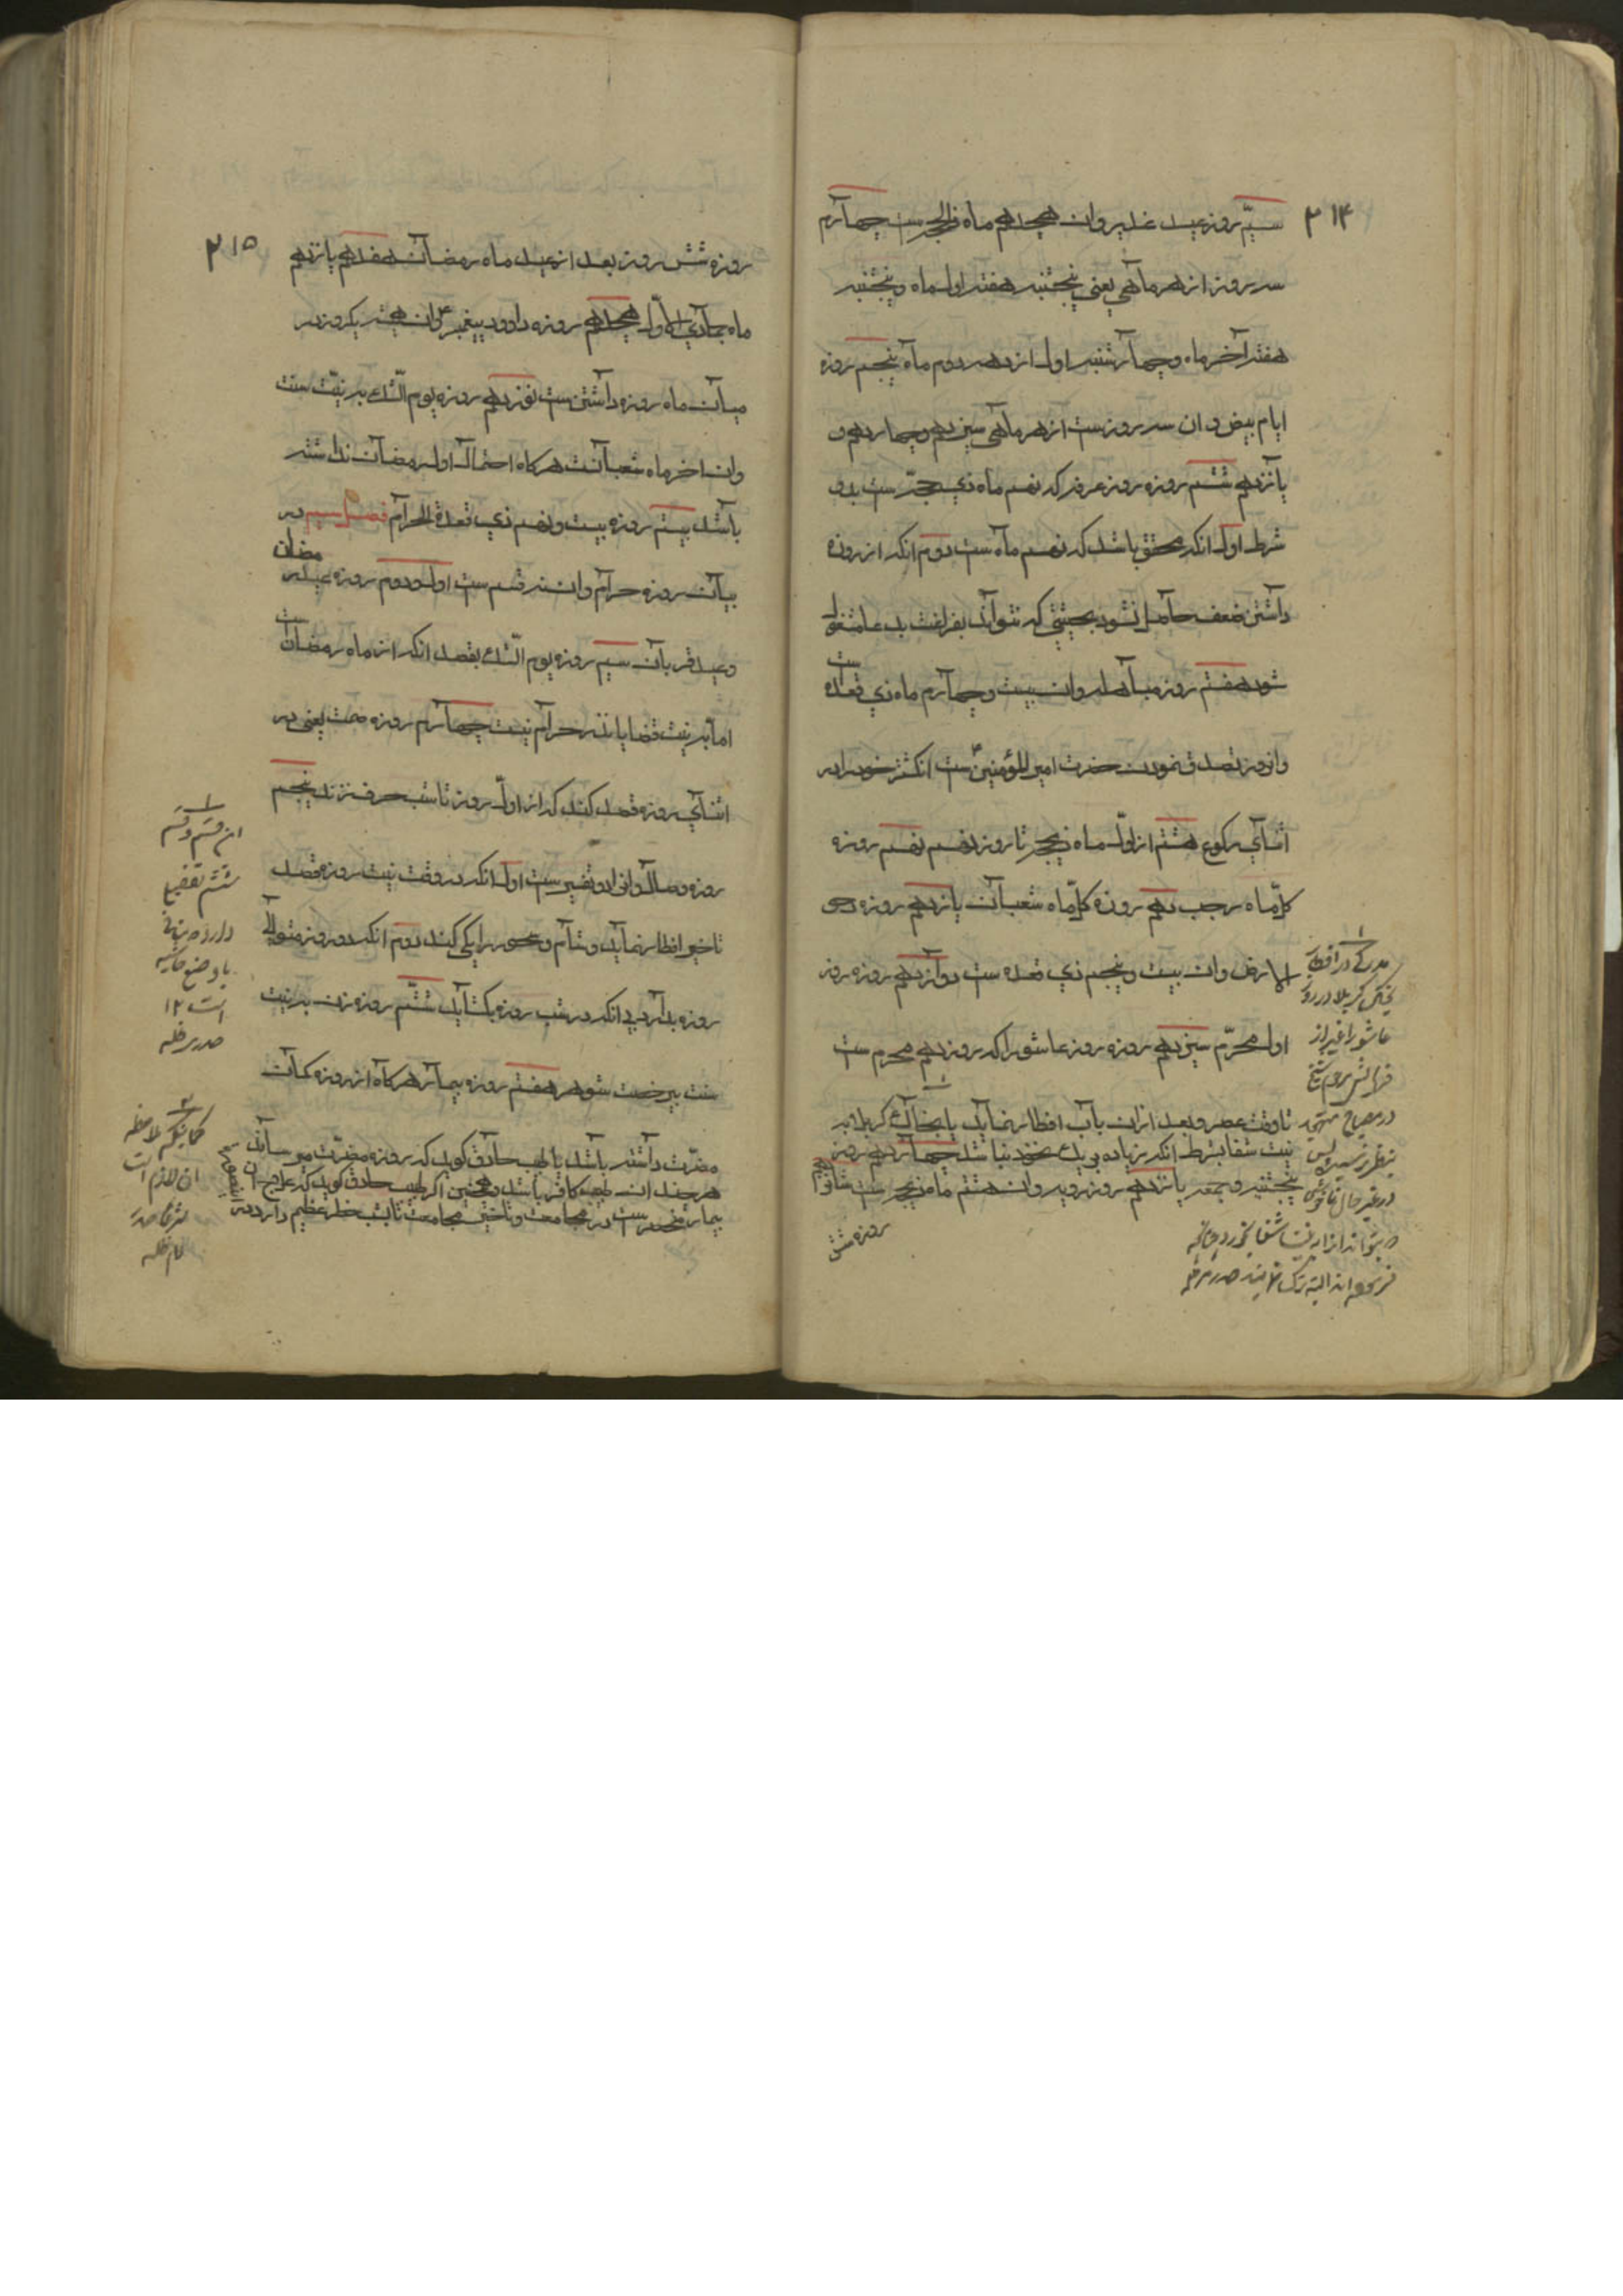 ۲۱۴
سیّم روز عید غدیر و ان هیجدهم ماه ذالحجه ست چهارم
سه روز از هر ماهی یعنی پنجشنبه هفته اول ماه و پنجشنبه
هفته آخر ماه و چهارشنبه اول از دهه دوم ماه پنجم روزه
ایام بیض و ان سه روزست از هر ماهی سیزدهم و چهاردهم و
پانزدهم ششم روزه روز عرفه که نهم ماه ذی حجه ست بدو
شرط اول انکه محقق باشد که نهم ماه ست دوم انکه از روزه
داشتن ضعف حاصل نشود بحیثیتی که نتواند بفراغت بدعا مشغول
شود هفتم روز مباهله و ان بیست و چهارم ماه ذی قعده ست
و انروز تصدق نمودن حضرت امیر المؤمنین ست انکشتر خود را در
اثنای رکوع هشتم از اول ماه ذیحجه تا روز نهم نهم روزه
کلّ ماه رجب دهم روزه کلّ ماه شعبان یازدهم روزه دحو
الارض و ان بیست و پنجم ذی قعده ست دوازدهم روزه روز
اول محرّم سیزدهم روزه روز عاشورا که روز دهم محرم ست
تا وقت عصر و بعد ازان باب افطار نماید یا بخاک کربلا به
نیت شفا بشرط انکه زیاده بر یک نخود نباشد چهاردهم روزه
پنجشنبه و جمعه پانزدهم روز ترویه و ان هشتم ماه ذیحجه ست شانزدهم
روزه شش
مدرکی در افطار
بخاک کربلا در روز
عاشورا غیر از
فرمایش مرحوم شیخ
در مصباح متهجد
بنظر نرسیده پس
در غیر حال ناخوشی
که بتواند ازان بنیت شفا بخورد چنانچه
فرموده اند البته ترک نمایند صدر مد ظله
۲۱۵
روزه شش روز بعد از عید ماه رمضان هفدهم پانزدهم
ماه جمادی الاوّل هیجدهم روزه داوود پیغمبر و ان همیشه یکروز در
میان ماه روزه داشتن ست نوزدهم روزه یوم الشک به نیّت سنت
و ان اخر ماه شعبانست هرکاه احتمال اول رمضان نداشته
باشد بیستم روزه بیست و نهم ذی قعدة الحرام فصل سیم در
بیان روزه حرام و ان نه قسم ست اول و دوم روزه عید رمضان
و عید قربان سیم روزه یوم الشک بقصد انکه از ماه رمضان ست
اما به نیت قضا یا نذر حرام نیست چهارم روزه صمت یعنی در
اثنای روزه قصد کند که از اوّل روز تا شب حرف نزند پنجم
روزه وصال و انرا دو تفسیر ست اول انکه در وقت نیت روزه قصد
تاخیر افطار نماید و شام و سحور را یکی کند دوم انکه دو روز متوالی
روزه بدارد بی انکه در شب روزه بکشاید ششم روزه زن به نیت
سنت بی رخصت شوهر هفتم روزه بیمار هرکاه از روزه کمان
مضرّت داشته باشد یا طبیب حاذق کوید که روزه مضرّت میرساند
هرچند ان طبیب کافر باشد و همچنین اکر طبیب حاذق کوید که علاج ان
بیمار منحصرست در مجامعت و تاخیر مجامعت تا بشب خطر عظیم دارد در
این قسم و قسم
ششم تفصیل
دارد
با وضع حاشیه
است ۱۲
صدر مد ظله
حکم ملاحظه
ان لازم است
صدر
دام ظله